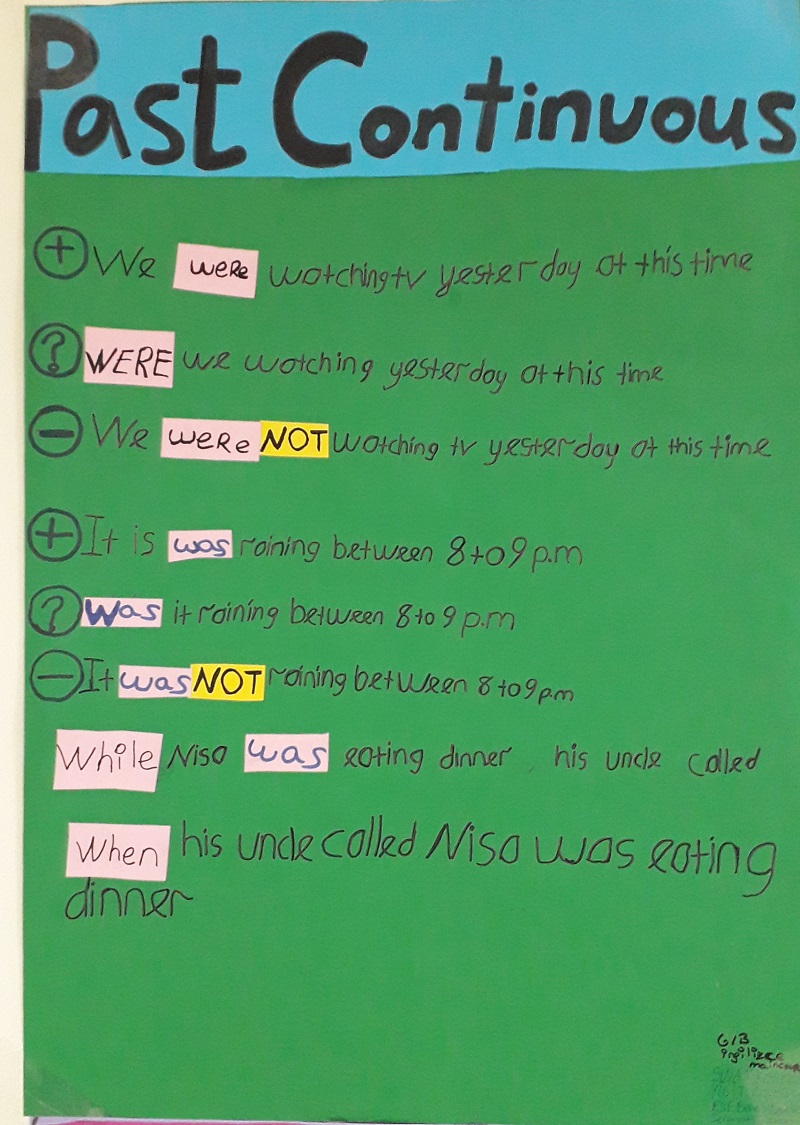 Past Continuous
+ We were watching tv yesterday at this time
? WERE we watching yesterday at this time
- We were NOT watching tv yesterday at this time
+ It is was raining between 8 to 9 p.m
? Was it raining between 8 to 9 p.m
- It was NOT raining between 8 to 9 p.m
While Nisa was eating dinner, his uncle called
When his uncle called Nisa was eating
dinner
6/B